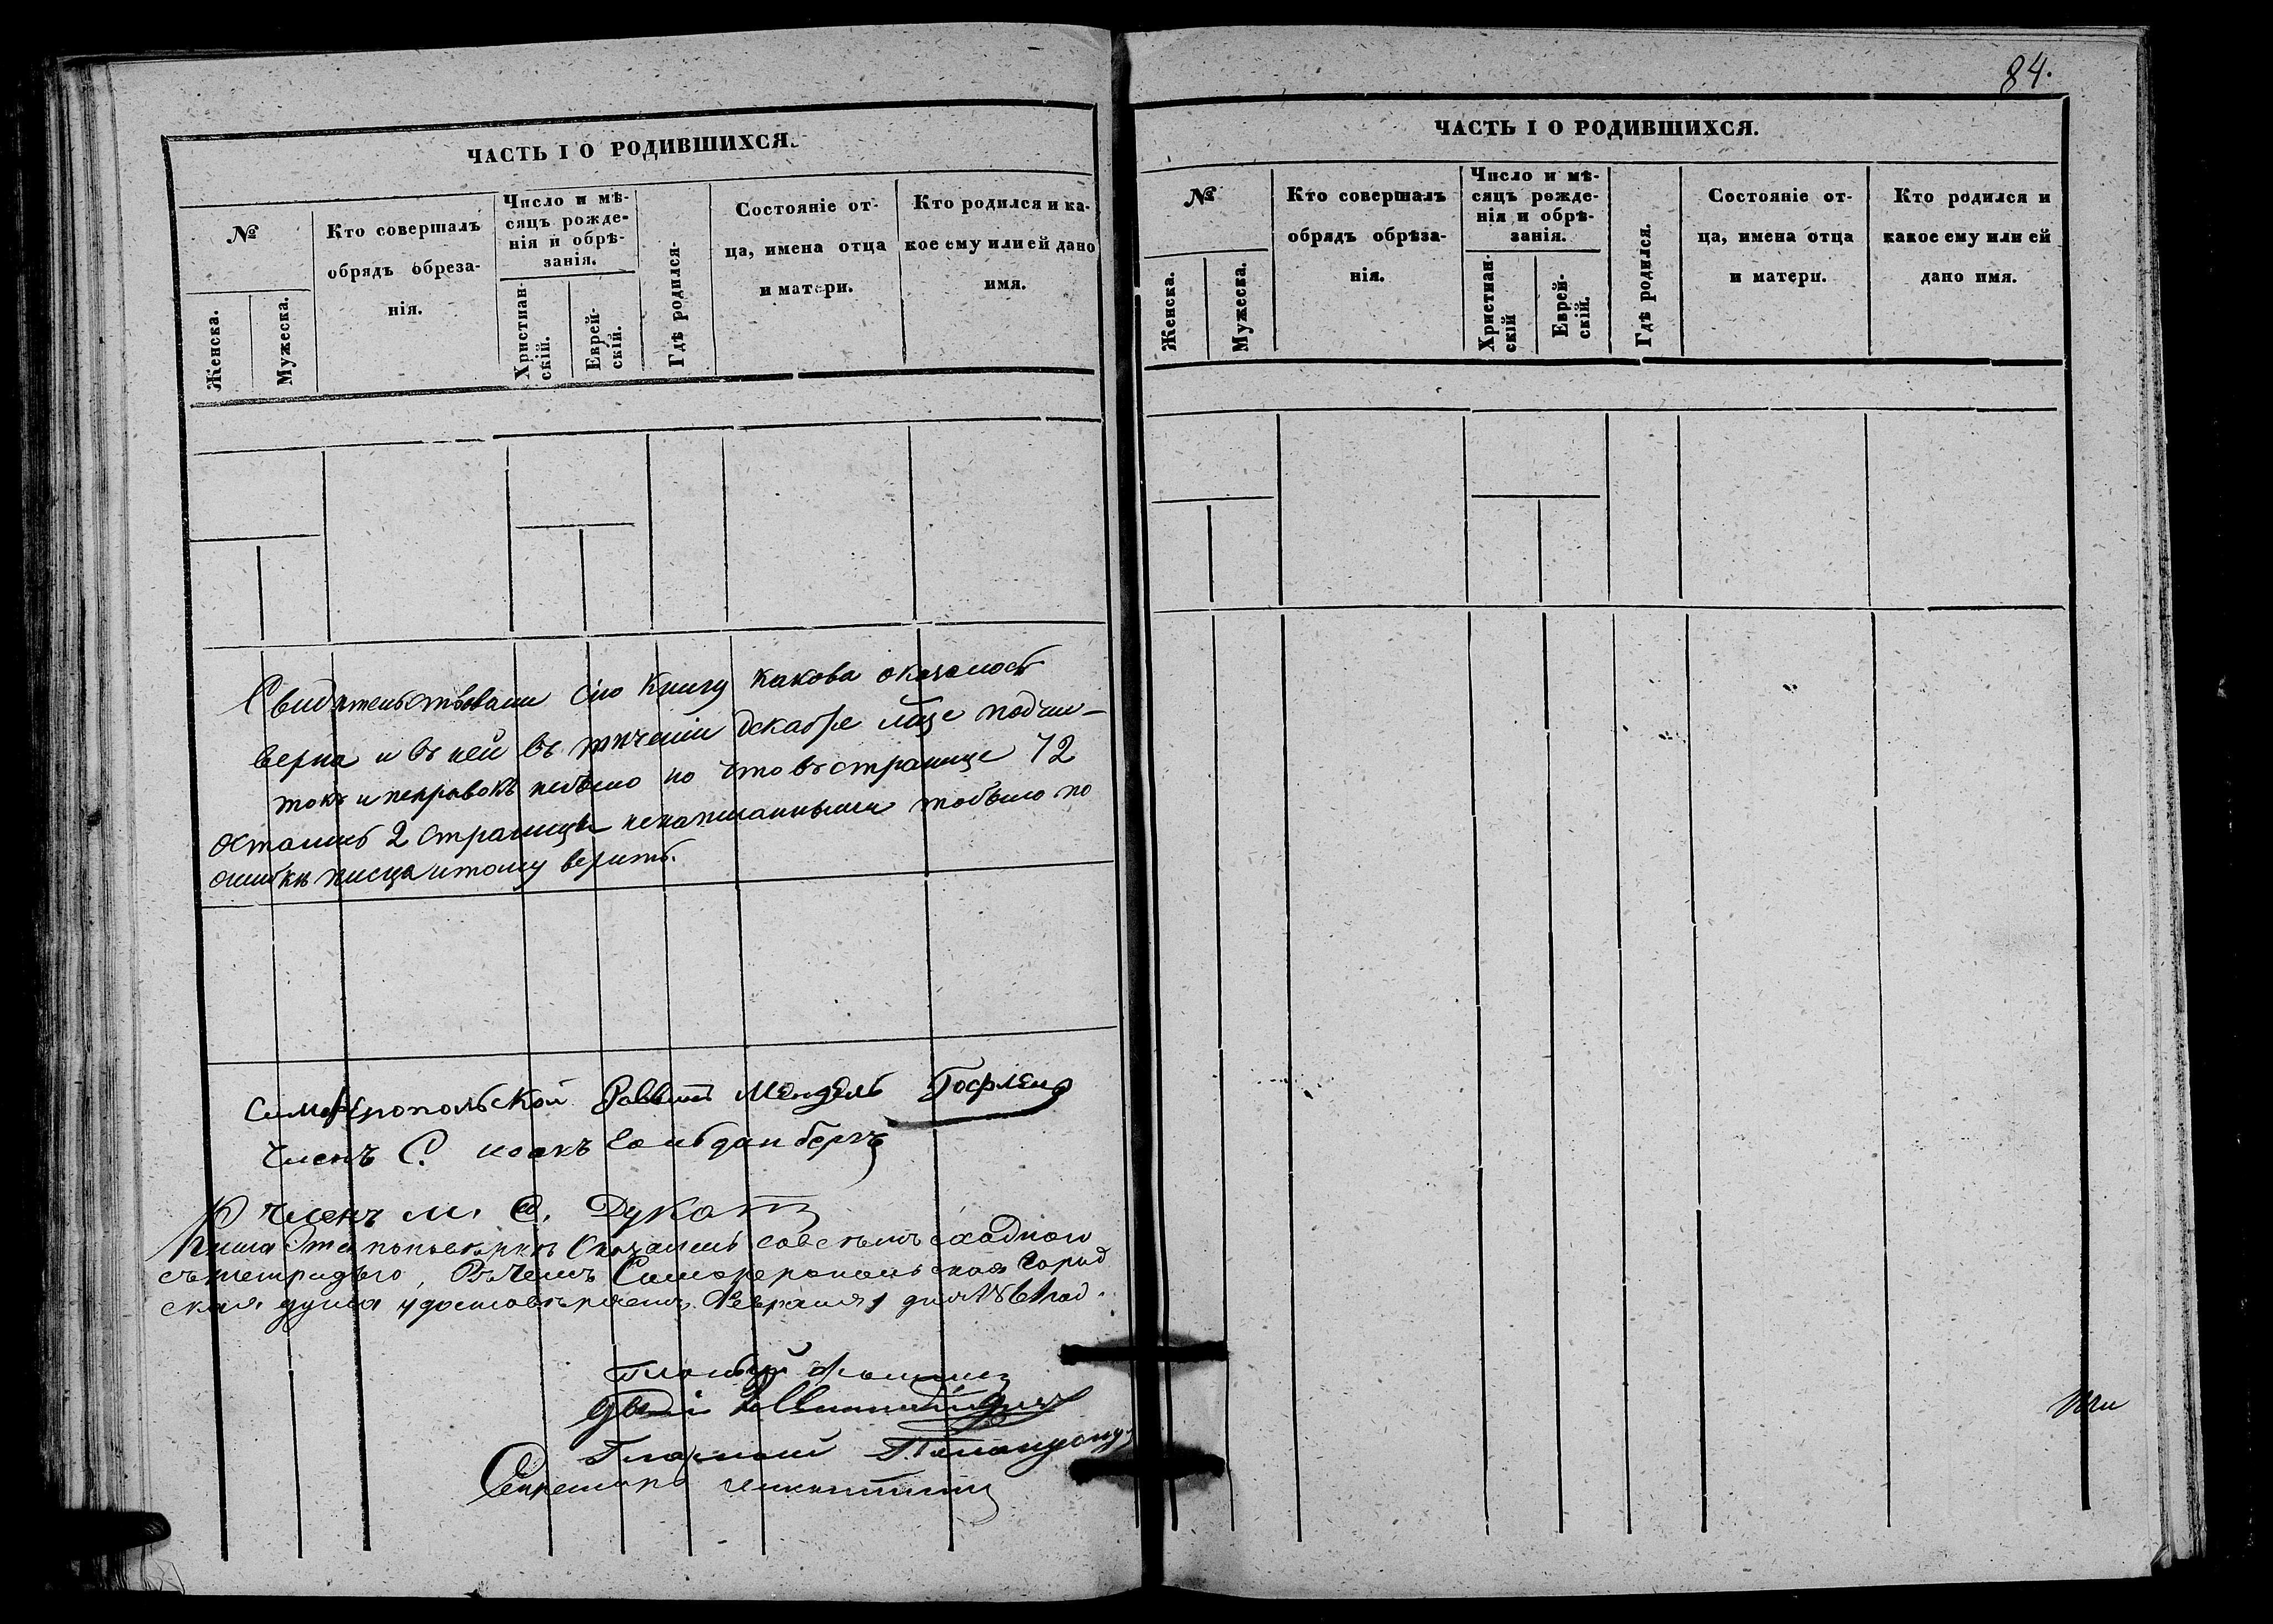 84.
ЧАСТЬ I О РОДИВШИХСЯ.
№
Женска.
Мужеска.
Кто совершалъ
обрядъ обреза-
нія.
Число и мѣ-
сяцъ рожде-
нія и обрѣ-
занія.
Христиан-
скій.
Еврей-
скій.
Гдѣ родился.
Состояніе от-
ца, имена отца
и матери.
Кто родился и ка-
кое ему или ей дано
имя.
Свидетельствовали сію книгу какова оказалось
верна и въ ней въ течении декабре м-це подчи-
токъ и поправокъ небыло но что въ странице 72
остались 2 страницы ненаписанными то было по
ошибке писца и тому верить.
Симферопольской Раввинъ Мендель Гофлен
Членъ С. Исакъ Гольданберъ
К членъ М. С. Дукат
Книга эта по поверке оказалась совсемъ сходною
съ тетрадью, въ чемъ Симферопольская Город
ская дума удостоверяетъ. Февраля 1 дня 1861 год.
Гласный
Гласный
Секретарь
ЧАСТЬ I О РОДИВШИХСЯ.
№
Женска.
Мужеска.
Кто совершалъ
обрядъ обрѣза-
нія.
Число и мѣ-
сяцъ рожде-
нія и обрѣ-
занія.
Христиан-
скій
Еврей-
скій.
Гдѣ родился.
Состояніе от-
ца, имена отца
и матери.
Кто родился и
какое ему или ей
дано имя.